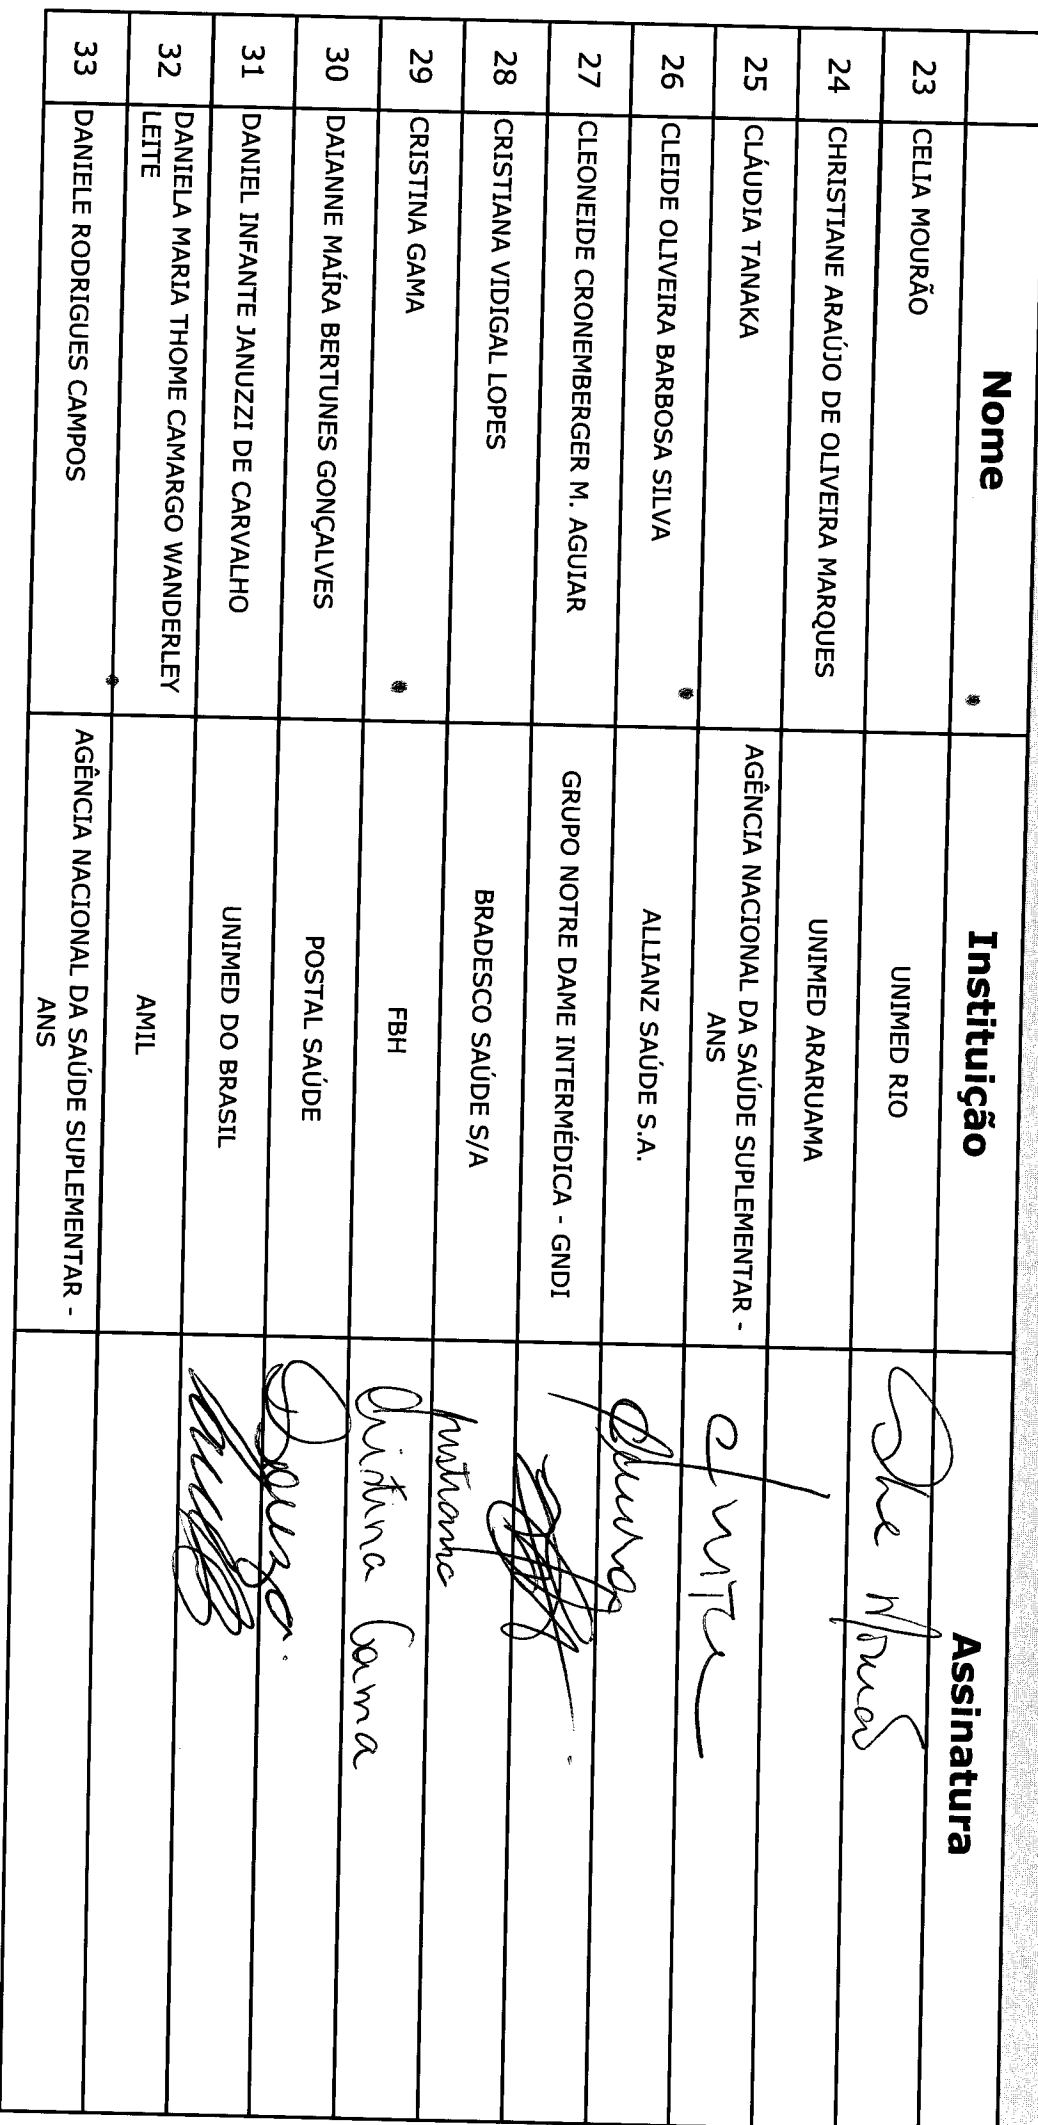 Nome Instituição Assinatura
23 CELIA MOURÃO UNIMED RIO
24 CHRISTIANE ARAÚJO DE OLIVEIRA MARQUES UNIMED ARARUAMA
25 CLÁUDIA TANAKA AGÊNCIA NACIONAL DA SAÚDE SUPLEMENTAR -
ANS
26 CLEIDE OLIVEIRA BARBOSA SILVA ALLIANZ SAÚDE S.A.
27 CLEONEIDE CRONEMBERGER M. AGUIAR GRUPO NOTRE DAME INTERMÉDICA - GNDI
28 CRISTIANA VIDIGAL LOPES BRADESCO SAÚDE S/A
29 CRISTINA GAMA FBH Cristina Gama
30 DAIANNE MAÍRA BERTUNES GONÇALVES POSTAL SAÚDE
31 DANIEL INFANTE JANUZZI DE CARVALHO UNIMED DO BRASIL
32 DANIELA MARIA THOME CAMARGO WANDERLEY
LEITE AMIL
33 DANIELE RODRIGUES CAMPOS AGÊNCIA NACIONAL DA SAÚDE SUPLEMENTAR -
ANS